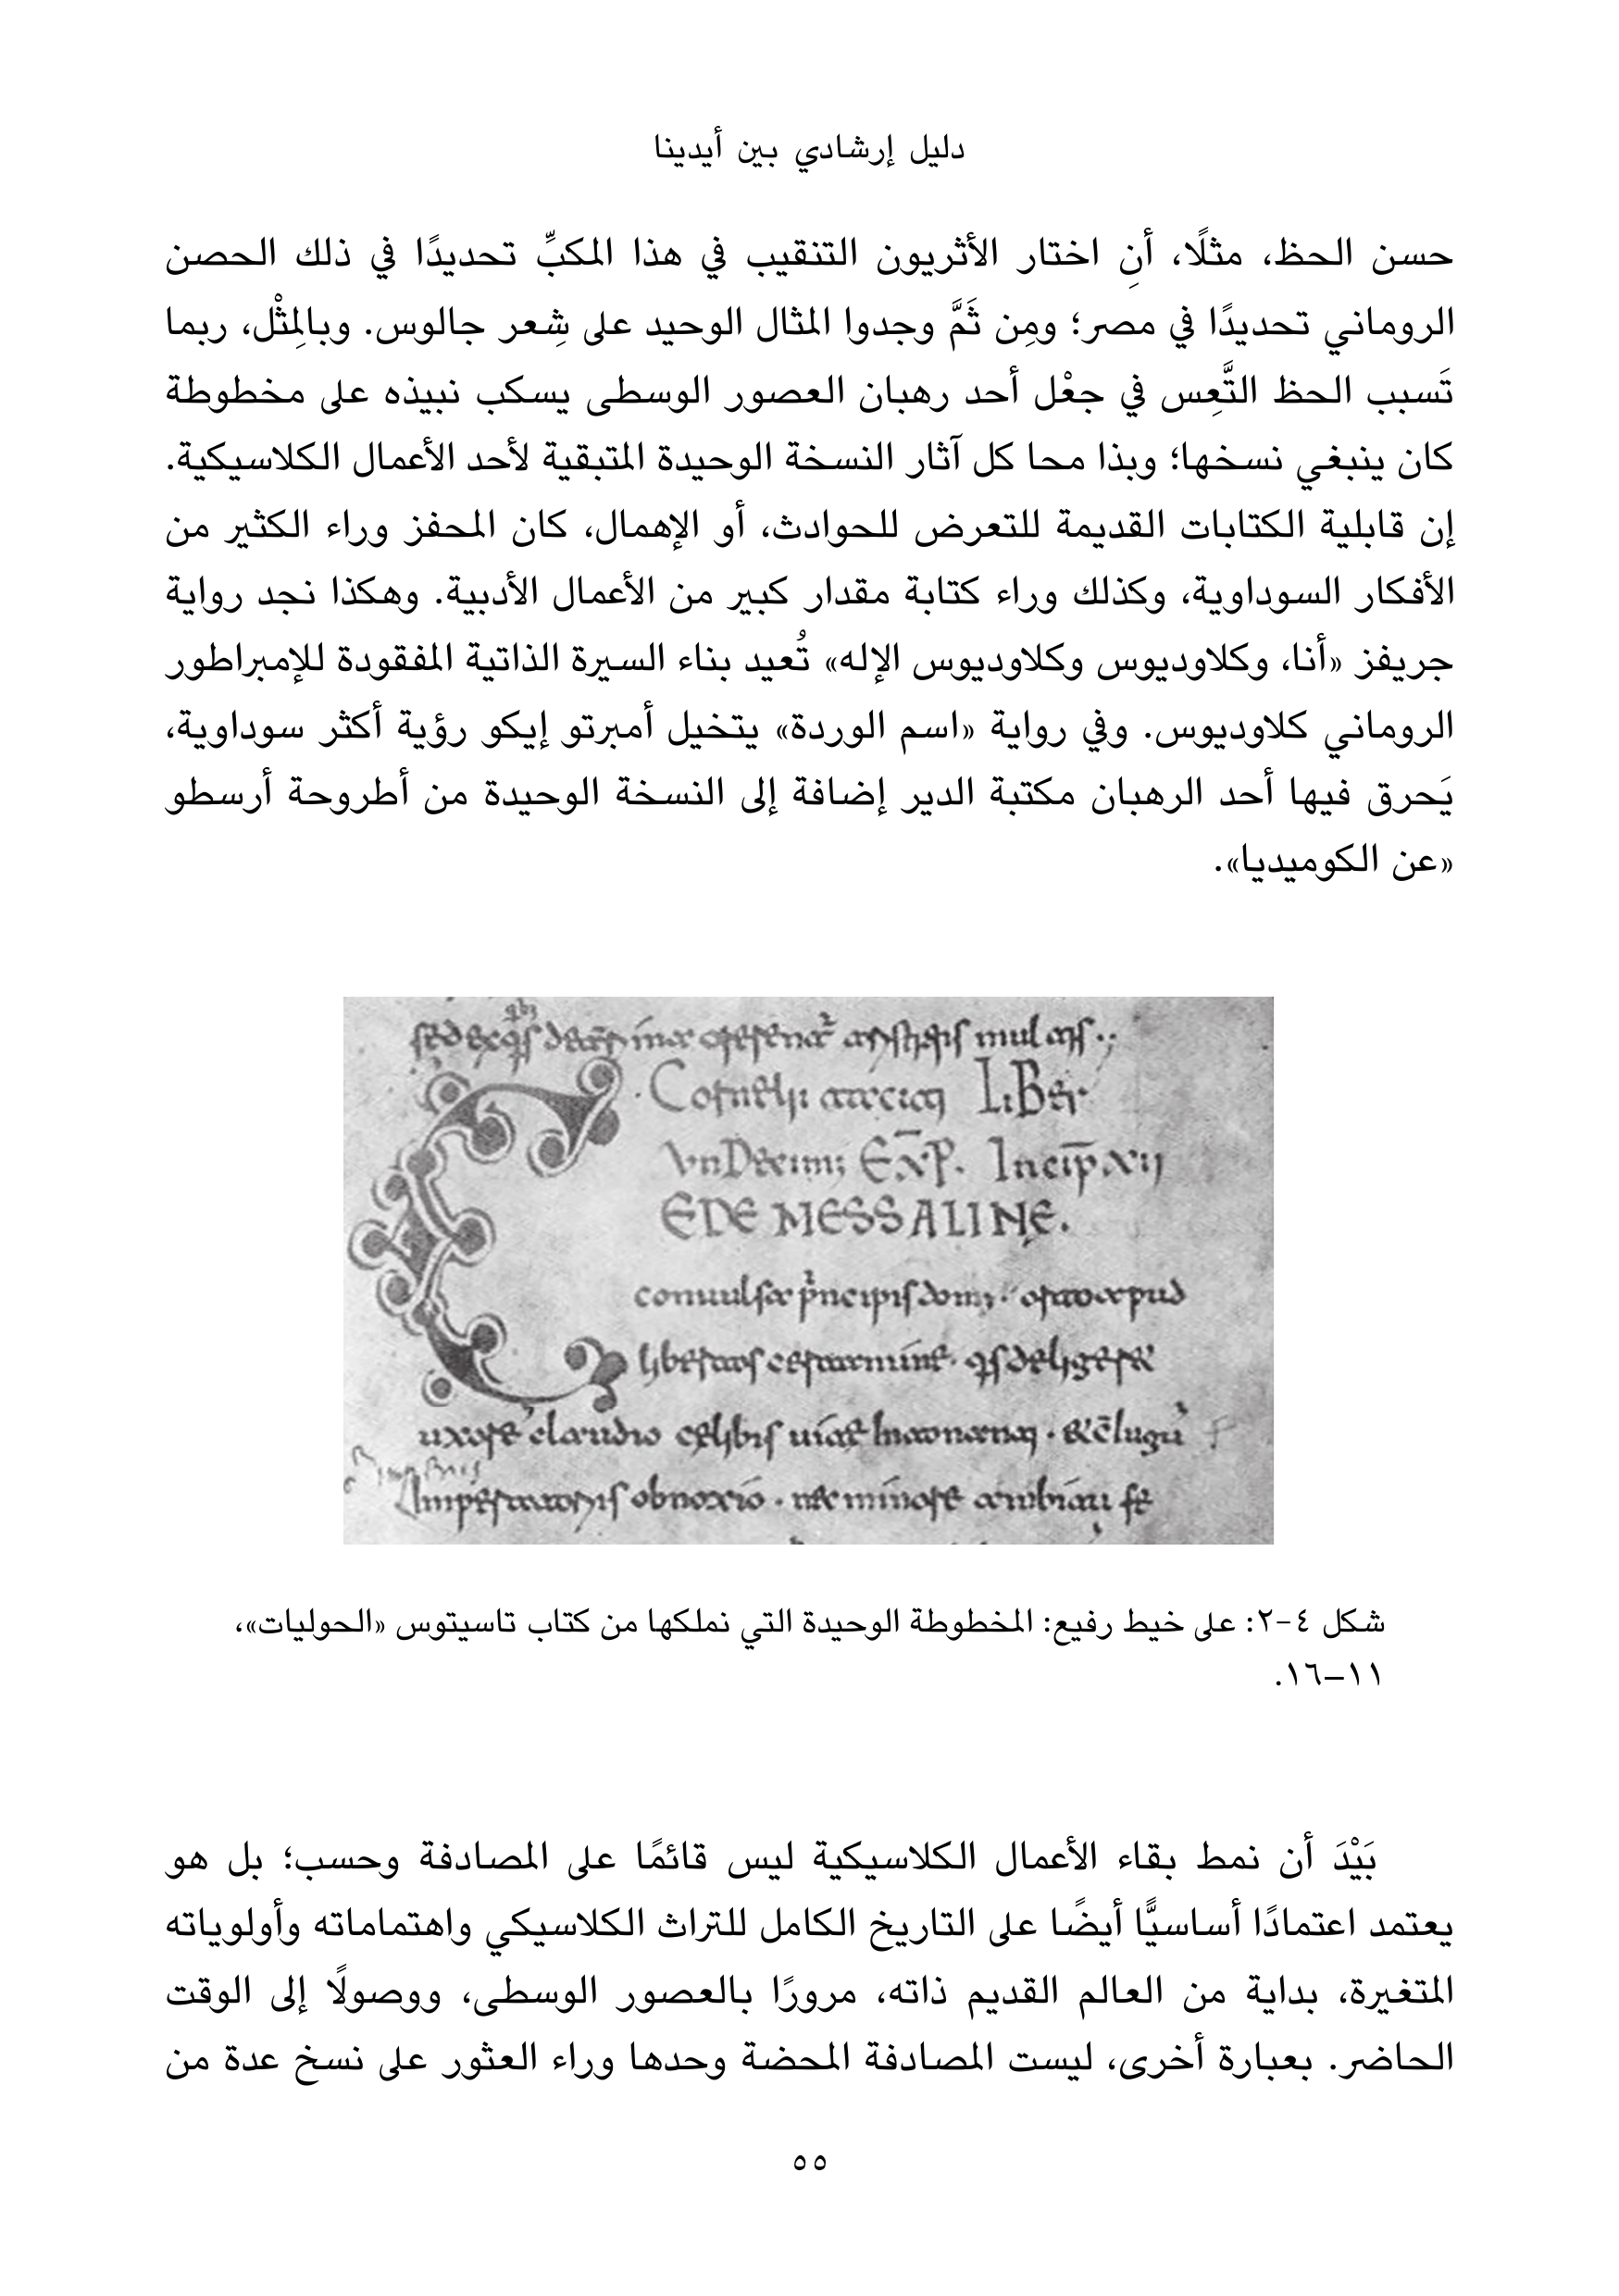 دليل إرشادي بين أيدينا
حسن الحظ، مثلًا، أنِ اختار الأثريون التنقيب في هذا المكبِّ تحديدًا في ذلك الحصن
الروماني تحديدًا في مصر؛ ومِن ثَمَّ وجدوا المثال الوحيد على شِعر جالوس. وبالمِثْل، ربما
تَسبب الحظ التَّعِس في جعْل أحد رهبان العصور الوسطى يسكب نبيذه على مخطوطة
كان ينبغي نسخها؛ وبذا محا كل آثار النسخة الوحيدة المتبقية لأحد الأعمال الكلاسيكية.
إن قابلية الكتابات القديمة للتعرض للحوادث، أو الإهمال، كان المحفز وراء الكثير من
الأفكار السوداوية، وكذلك وراء كتابة مقدار كبير من الأعمال الأدبية. وهكذا نجد رواية
جريفز «أنا، وكلاوديوس وكلاوديوس الإله» تُعيد بناء السيرة الذاتية المفقودة للإمبراطور
الروماني كلاوديوس. وفي رواية «اسم الوردة» يتخيل أمبرتو إيكو رؤية أكثر سوداوية،
يَحرق فيها أحد الرهبان مكتبة الدير إضافة إلى النسخة الوحيدة من أطروحة أرسطو
«عن الكوميديا».
LiBer
Incip xij
EDE MESSALINE.
شكل ٤-٢: على خيط رفيع: المخطوطة الوحيدة التي نملكها من كتاب تاسيتوس «الحوليات»،
١١–١٦.
بَيْدَ أن نمط بقاء الأعمال الكلاسيكية ليس قائمًا على المصادفة وحسب؛ بل هو
يعتمد اعتمادًا أساسيًّا أيضًا على التاريخ الكامل للتراث الكلاسيكي واهتماماته وأولوياته
المتغيرة، بداية من العالم القديم ذاته، مرورًا بالعصور الوسطى، ووصولًا إلى الوقت
الحاضر. بعبارة أخرى، ليست المصادفة المحضة وحدها وراء العثور على نسخ عدة من
٥٥